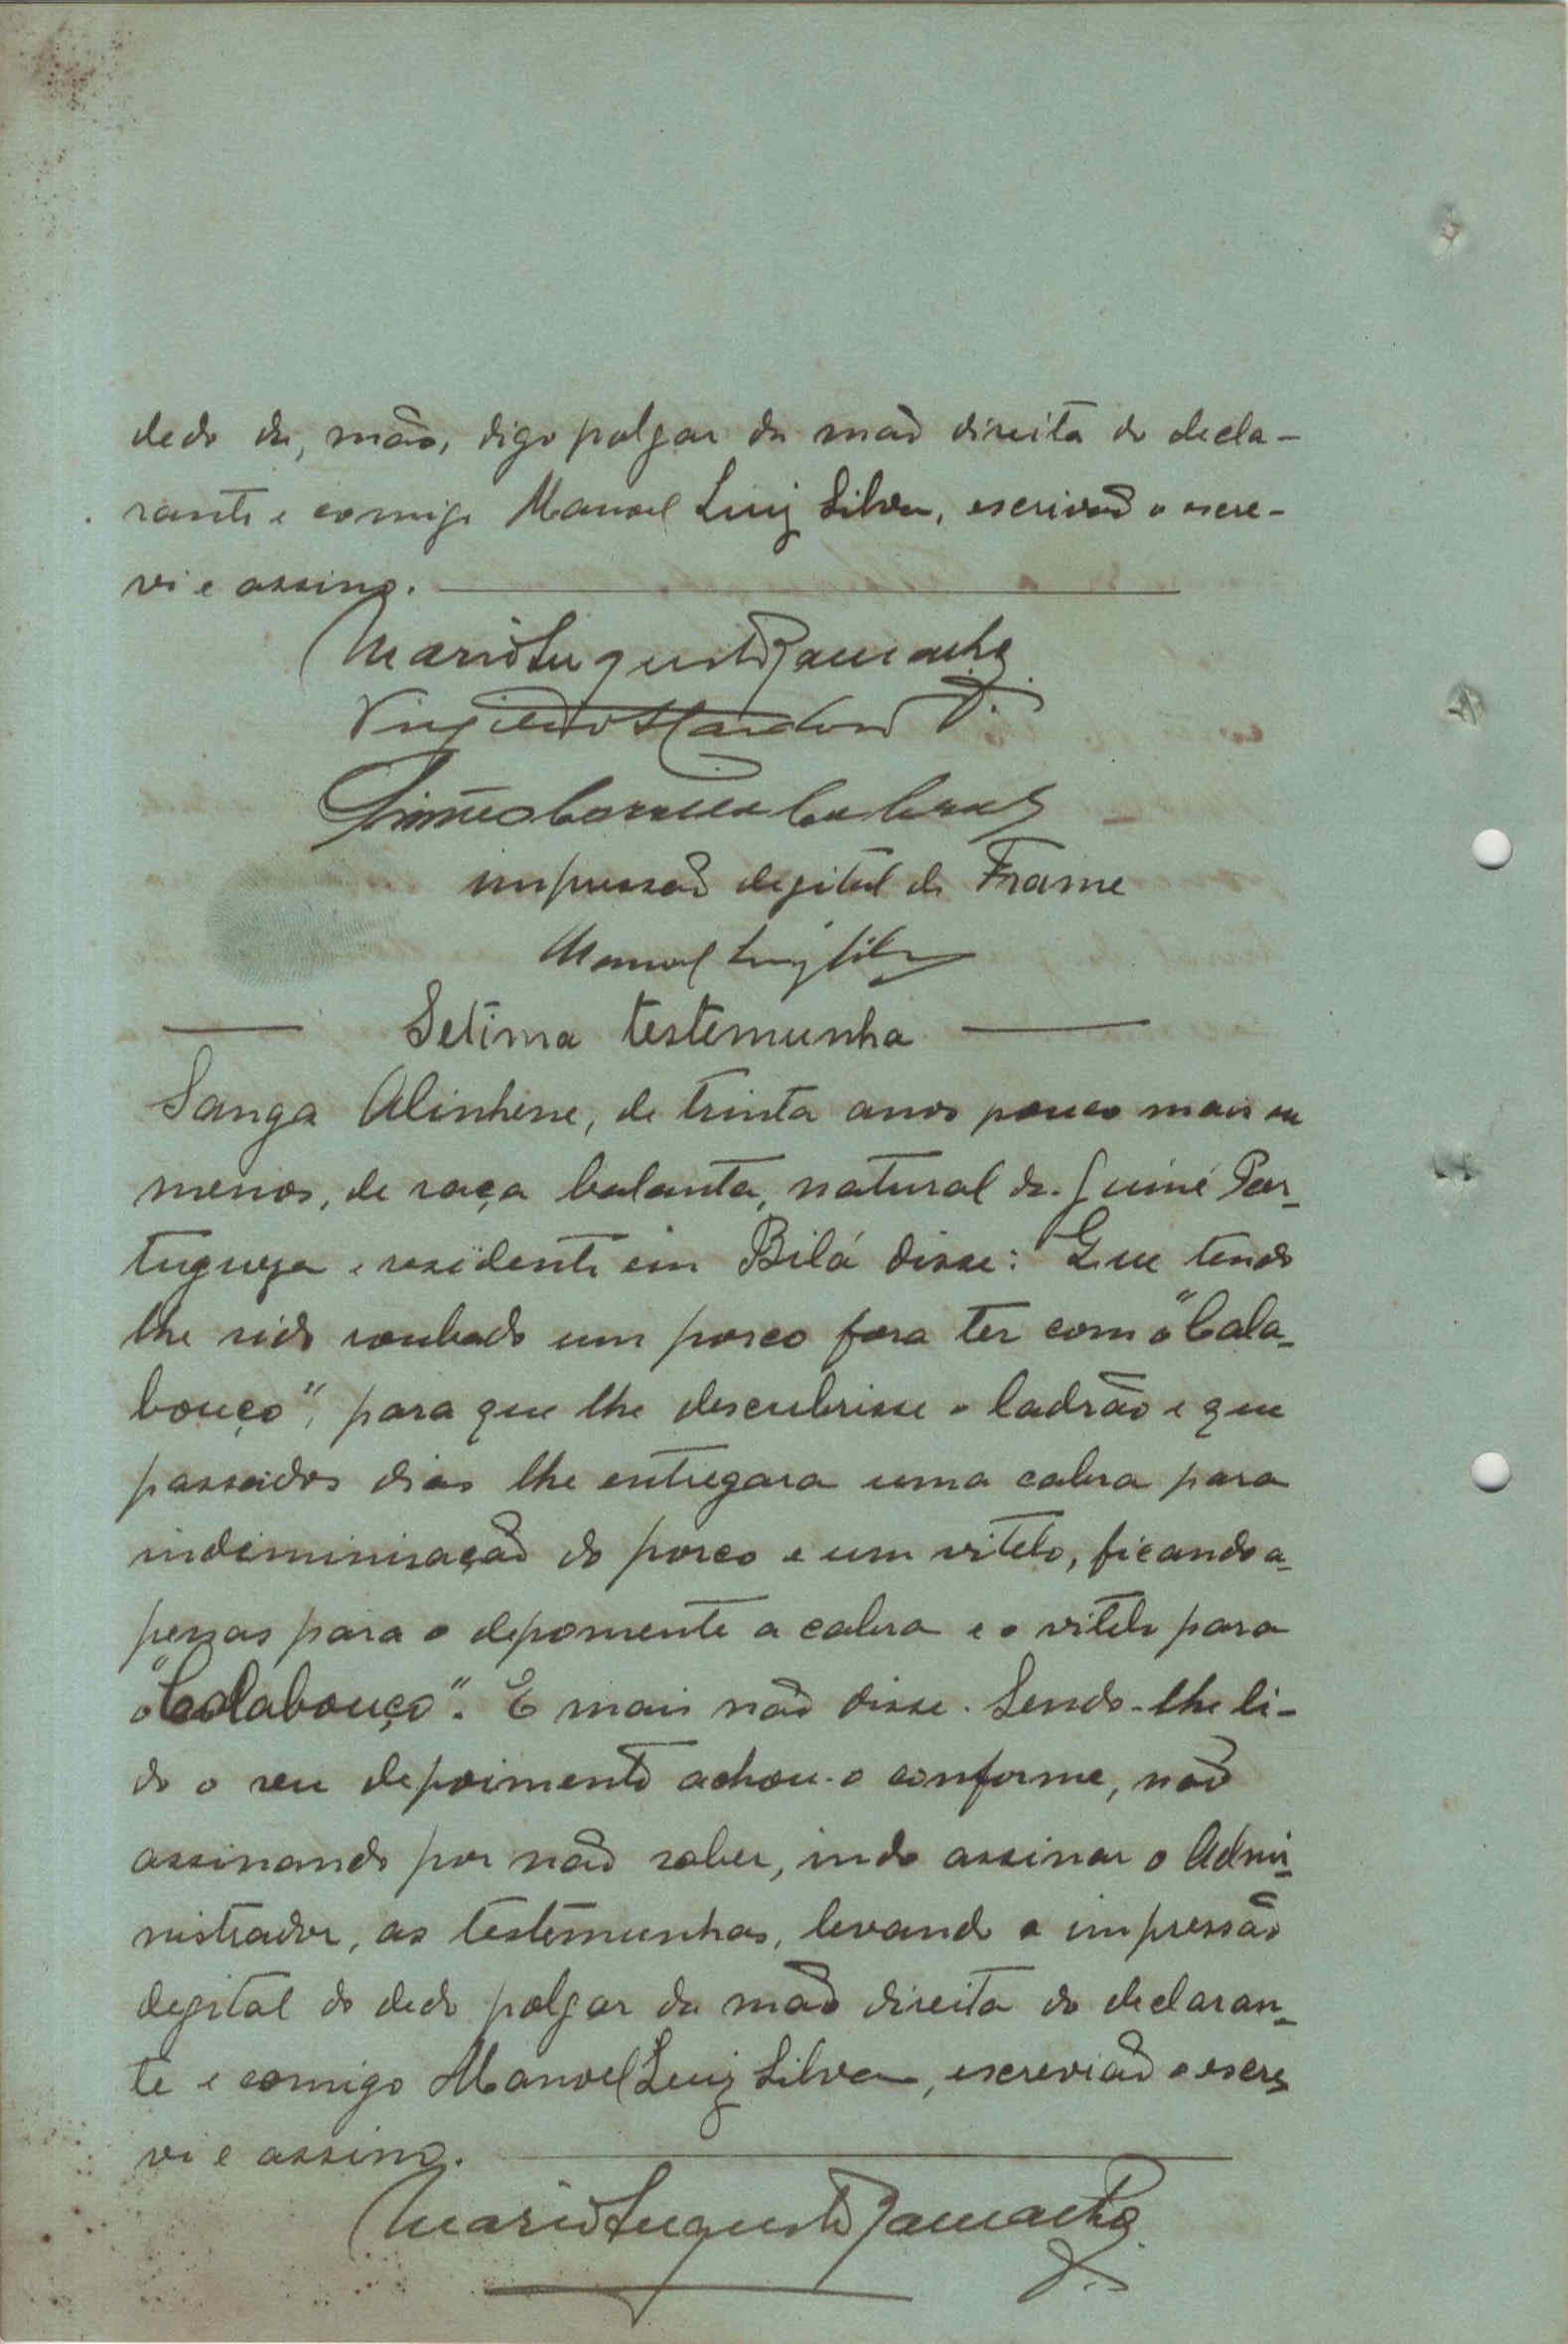 dedo da, mão, digo polgar da mão direita do decla-
rante e comigo Manoel Luiz Silva, escrivão o escre-
vi e assino.
Mario Augusto
Virgilio
Correia Cabral
impressão degital de Frame
Manoel Luiz Silva
Setima testemunha
Sanga Alinhene, de trinta anos pouco mais ou
menos, de raça balanta, natural da Guiné Por-
tugueza e residente em Bilá disse: Que tendo
lhe sido roubado um porco fora ter com o "Cala-
bouço", para que lhe descubrisse o ladrão e que
passados dias lhe entregara uma cabra para
indiminisação do porco e um vitelo, ficando a-
penas para o depomente a cabra e o vitelo para
o "Calabouço". E mais não disse. Sendo-lhe li-
do o seu depoimento achou-o conforme, não
assinando por não saber, indo assinar o Admi-
nistrador, as testemunhas, levando a impressão
degital do dedo polgar da mão direita do declaran-
te e comigo Manoel Luiz Silva, escrevião o escre-
vi e assino.
Mario Augusto